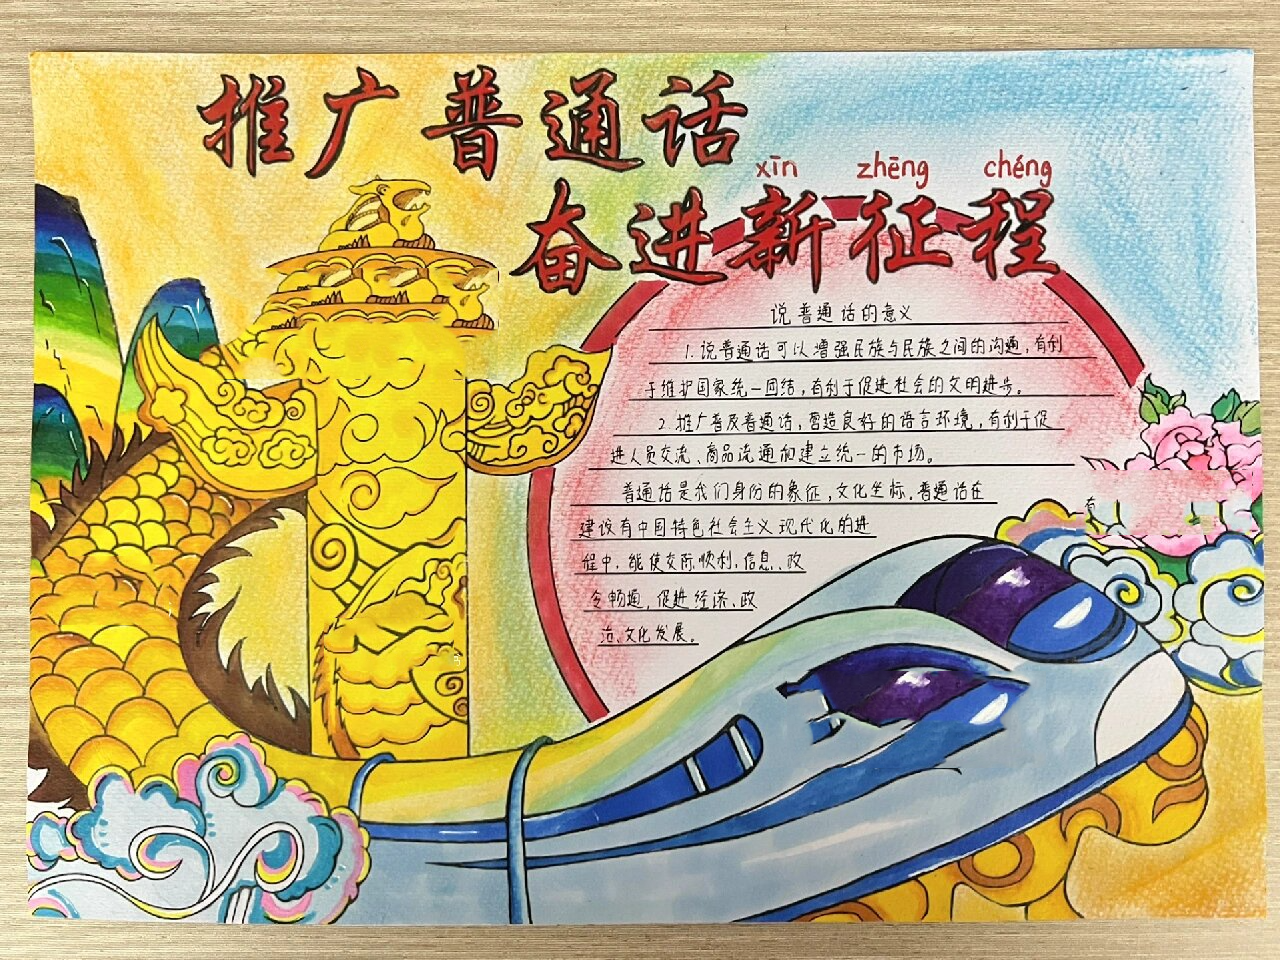 推广普通话
xīn zhēng chéng
奋进新征程
说普通话的意义
1.说普通话可以增强民族与民族之间的沟通,有利
于维护国家统一团结,有利于促进社会的文明进步。
2.推广普及普通话,营造良好的语言环境,有利于促
进人员交流、商品流通和建立统一的市场。
普通话是我们身份的象征,文化坐标,普通话在
建设有中国特色社会主义现代化的进
程中,能使交际顺利,信息、政
令畅通,促进经济、政
治、文化发展。